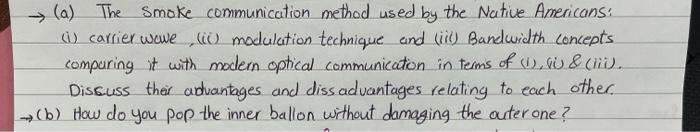 → (a) The smoke communication method used by the Native Americans:
(i) carrier wave, (ii) modulation technique and (iii) Bandwidth concepts
comparing it with modern optical communicaton in tems of (i), (ii) & (iii).
Discuss their advantages and dissadvantages relating to each other.
→ (b) How do you pop the inner ballon without damaging the outer one?